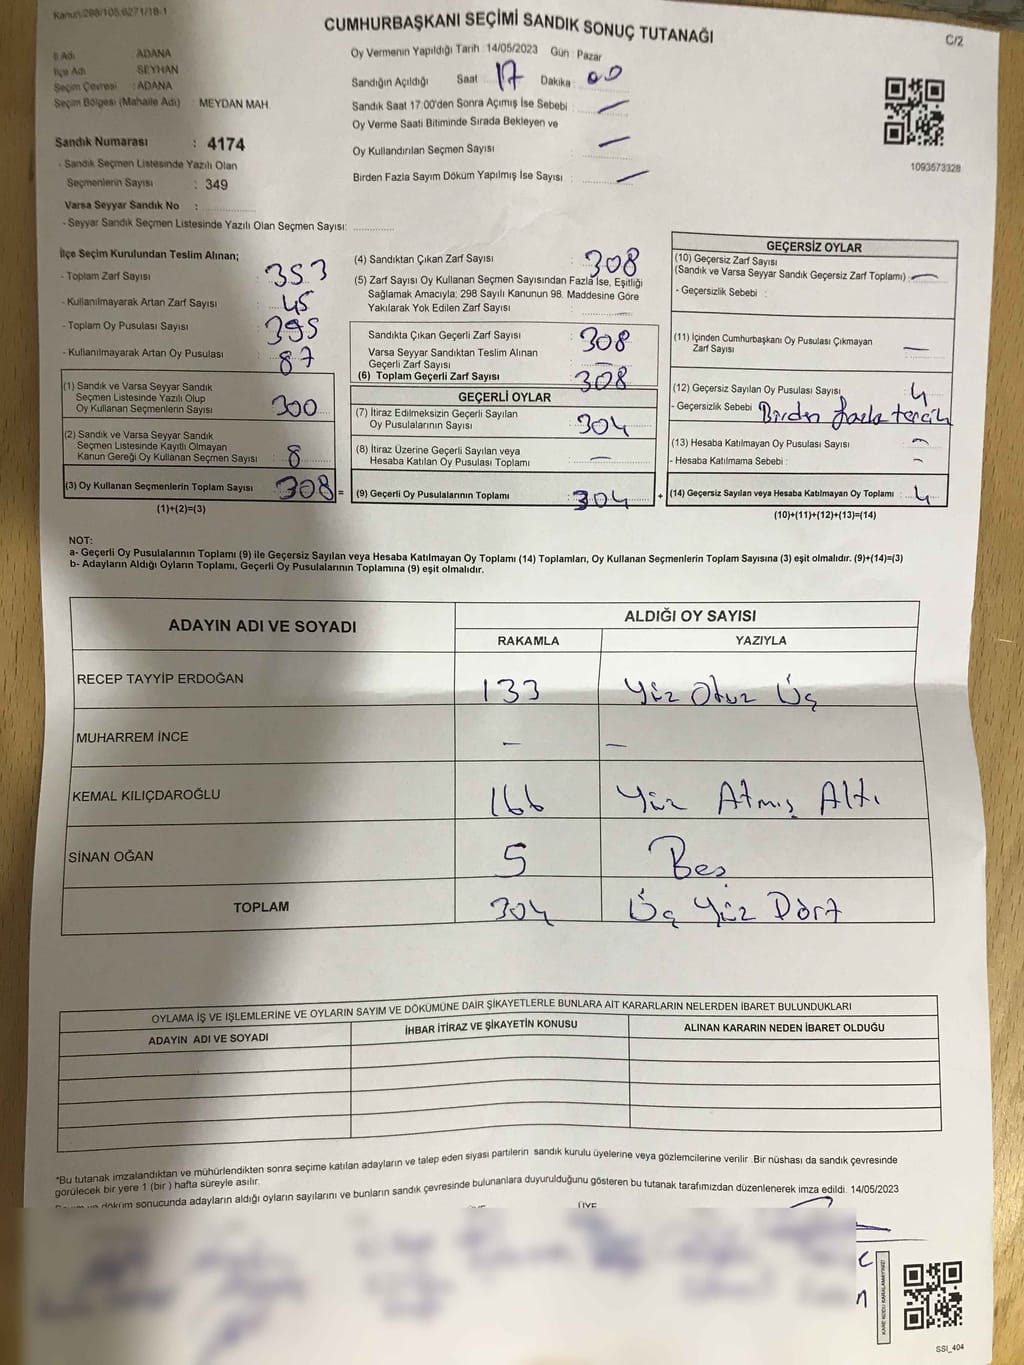 Kanun:298/105,6271/18-1
CUMHURBAŞKANI SEÇİMİ SANDIK SONUÇ TUTANAĞI
C/2
İl Adı : ADANA
İlçe Adı : SEYHAN
Seçim Çevresi : ADANA
Seçim Bölgesi (Mahalle Adı) : MEYDAN MAH.
Oy Vermenin Yapıldığı Tarih : 14/05/2023 Gün : Pazar
Sandığın Açıldığı Saat : 17 Dakika : 00
Sandık Saat 17:00'den Sonra Açımış İse Sebebi : —
Oy Verme Saati Bitiminde Sırada Bekleyen ve
Oy Kullandırılan Seçmen Sayısı : —
Birden Fazla Sayım Döküm Yapılmış İse Sayısı : —
1093573328
Sandık Numarası : 4174
- Sandık Seçmen Listesinde Yazılı Olan
Seçmenlerin Sayısı : 349
Varsa Seyyar Sandık No :
- Seyyar Sandık Seçmen Listesinde Yazılı Olan Seçmen Sayısı:
İlçe Seçim Kurulundan Teslim Alınan;
- Toplam Zarf Sayısı : 353
- Kullanılmayarak Artan Zarf Sayısı : 45
- Toplam Oy Pusulası Sayısı : 395
- Kullanılmayarak Artan Oy Pusulası : 87
(1) Sandık ve Varsa Seyyar Sandık
Seçmen Listesinde Yazılı Olup
Oy Kullanan Seçmenlerin Sayısı : 300
(2) Sandık ve Varsa Seyyar Sandık
Seçmen Listesinde Kayıtlı Olmayan
Kanun Gereği Oy Kullanan Seçmen Sayısı : 8
(3) Oy Kullanan Seçmenlerin Toplam Sayısı : 308 =
(1)+(2)=(3)
(4) Sandıktan Çıkan Zarf Sayısı : 308
(5) Zarf Sayısı Oy Kullanan Seçmen Sayısından Fazla İse, Eşitliği
Sağlamak Amacıyla; 298 Sayılı Kanunun 98. Maddesine Göre
Yakılarak Yok Edilen Zarf Sayısı :
Sandıkta Çıkan Geçerli Zarf Sayısı : 308
Varsa Seyyar Sandıktan Teslim Alınan
Geçerli Zarf Sayısı : —
(6) Toplam Geçerli Zarf Sayısı : 308
GEÇERLİ OYLAR
(7) İtiraz Edilmeksizin Geçerli Sayılan
Oy Pusulalarının Sayısı : 304
(8) İtiraz Üzerine Geçerli Sayılan veya
Hesaba Katılan Oy Pusulası Toplamı : —
(9) Geçerli Oy Pusulalarının Toplamı : 304 +
GEÇERSİZ OYLAR
(10) Geçersiz Zarf Sayısı
(Sandık ve Varsa Seyyar Sandık Geçersiz Zarf Toplamı) : —
- Geçersizlik Sebebi :
(11) İçinden Cumhurbaşkanı Oy Pusulası Çıkmayan
Zarf Sayısı : —
(12) Geçersiz Sayılan Oy Pusulası Sayısı : 4
- Geçersizlik Sebebi : Birden fazla tercih
(13) Hesaba Katılmayan Oy Pusulası Sayısı : —
- Hesaba Katılmama Sebebi : —
(14) Geçersiz Sayılan veya Hesaba Katılmayan Oy Toplamı : 4
(10)+(11)+(12)+(13)=(14)
NOT:
a- Geçerli Oy Pusulalarının Toplamı (9) ile Geçersiz Sayılan veya Hesaba Katılmayan Oy Toplamı (14) Toplamları, Oy Kullanan Seçmenlerin Toplam Sayısına (3) eşit olmalıdır. (9)+(14)=(3)
b- Adayların Aldığı Oyların Toplamı, Geçerli Oy Pusulalarının Toplamına (9) eşit olmalıdır.
ADAYIN ADI VE SOYADI
ALDIĞI OY SAYISI
RAKAMLA YAZIYLA
RECEP TAYYİP ERDOĞAN 133 Yüz Otuz Üç
MUHARREM İNCE — —
KEMAL KILIÇDAROĞLU 166 Yüz Atmış Altı
SİNAN OĞAN 5 Beş
TOPLAM 304 Üç Yüz Dört
OYLAMA İŞ VE İŞLEMLERİNE VE OYLARIN SAYIM VE DÖKÜMÜNE DAİR ŞİKAYETLERLE BUNLARA AİT KARARLARIN NELERDEN İBARET BULUNDUKLARI
ADAYIN ADI VE SOYADI İHBAR İTİRAZ VE ŞİKAYETİN KONUSU ALINAN KARARIN NEDEN İBARET OLDUĞU
*Bu tutanak imzalandıktan ve mühürlendikten sonra seçime katılan adayların ve talep eden siyasi partilerin sandık kurulu üyelerine veya gözlemcilerine verilir .Bir nüshası da sandık çevresinde
görülecek bir yere 1 (bir ) hafta süreyle asılır.
döküm sonucunda adayların aldığı oyların sayılarını ve bunların sandık çevresinde bulunanlara duyurulduğunu gösteren bu tutanak tarafımızdan düzenlenerek imza edildi. 14/05/2023
ÜYE
KARE KODU KARALAMAYINIZ!
SSI_404